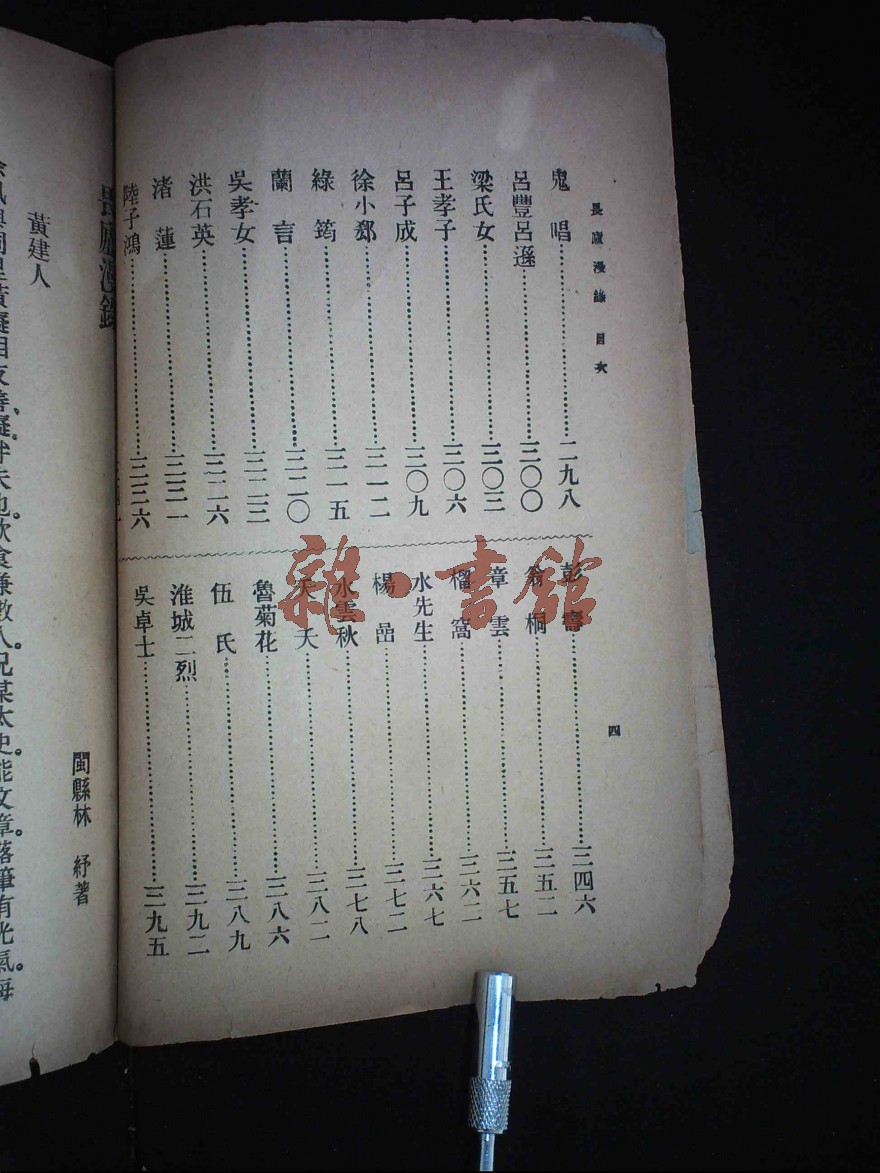 畏廬漫錄 目次
四
鬼唱……二九八
呂豐呂遜……三〇〇
梁氏女……三〇三
王孝子……三〇六
呂子成……三〇九
徐小……三一二
綠筠……三一五
蘭言……三二〇
吳孝女……三二三
洪石英……三二六
渚蓮……三三一
陸子鴻……三三六
彭……三四六
翁桐……三五二
章雲……三五七
榴窩……三六二
水先生……三六七
楊喦……三七二
水雲秋……三七八
夭夭……三八二
魯菊花……三八六
伍氏……三八九
淮城二烈……三九二
吳卓士……三九五
雜·書館
畏廬漫錄
閩縣林 紓著
黃建人
友善。癡伴夫也。飲食兼數人。兄某太史。能文章。落筆有光氣。每